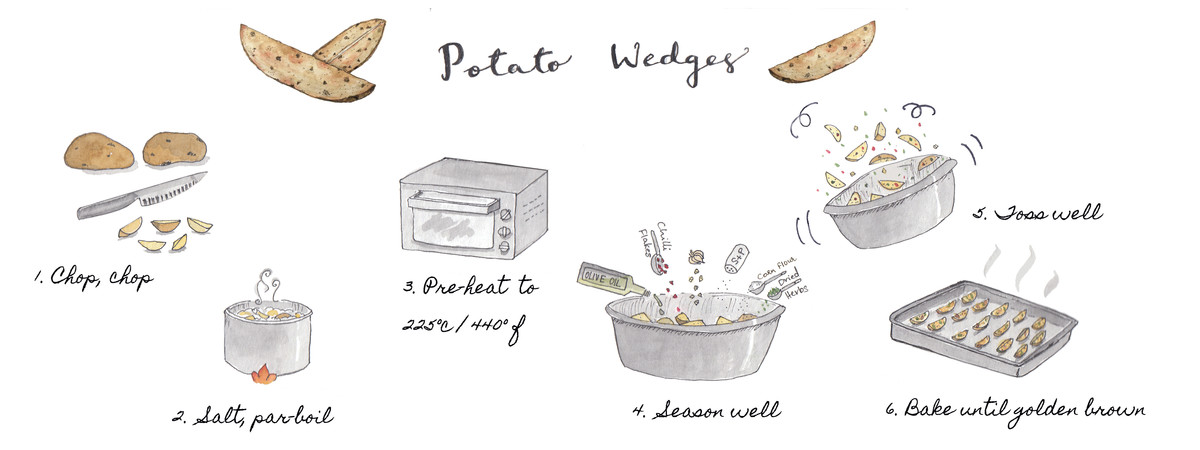 Potato Wedges
1. Chop, chop
2. Salt, par-boil
3. Pre-heat to
225°c / 440° f
OLIVE OIL
Chilli
Flakes
S+P
Corn flour
Dried
Herbs
4. Season well
5. Toss well
6. Bake until golden brown